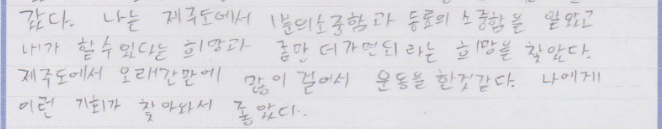 같다. 나는 제주도에서 1분의소중함과 동료의 소중함을 알았고
내가 할수있다는 희망과 좀만 더가면되 라는 희망을 찾았다.
제주도에서 오래간만에 많이 걸어서 운동을 한것같다. 나에게
이런 기회가 찾아와서 좋았다.